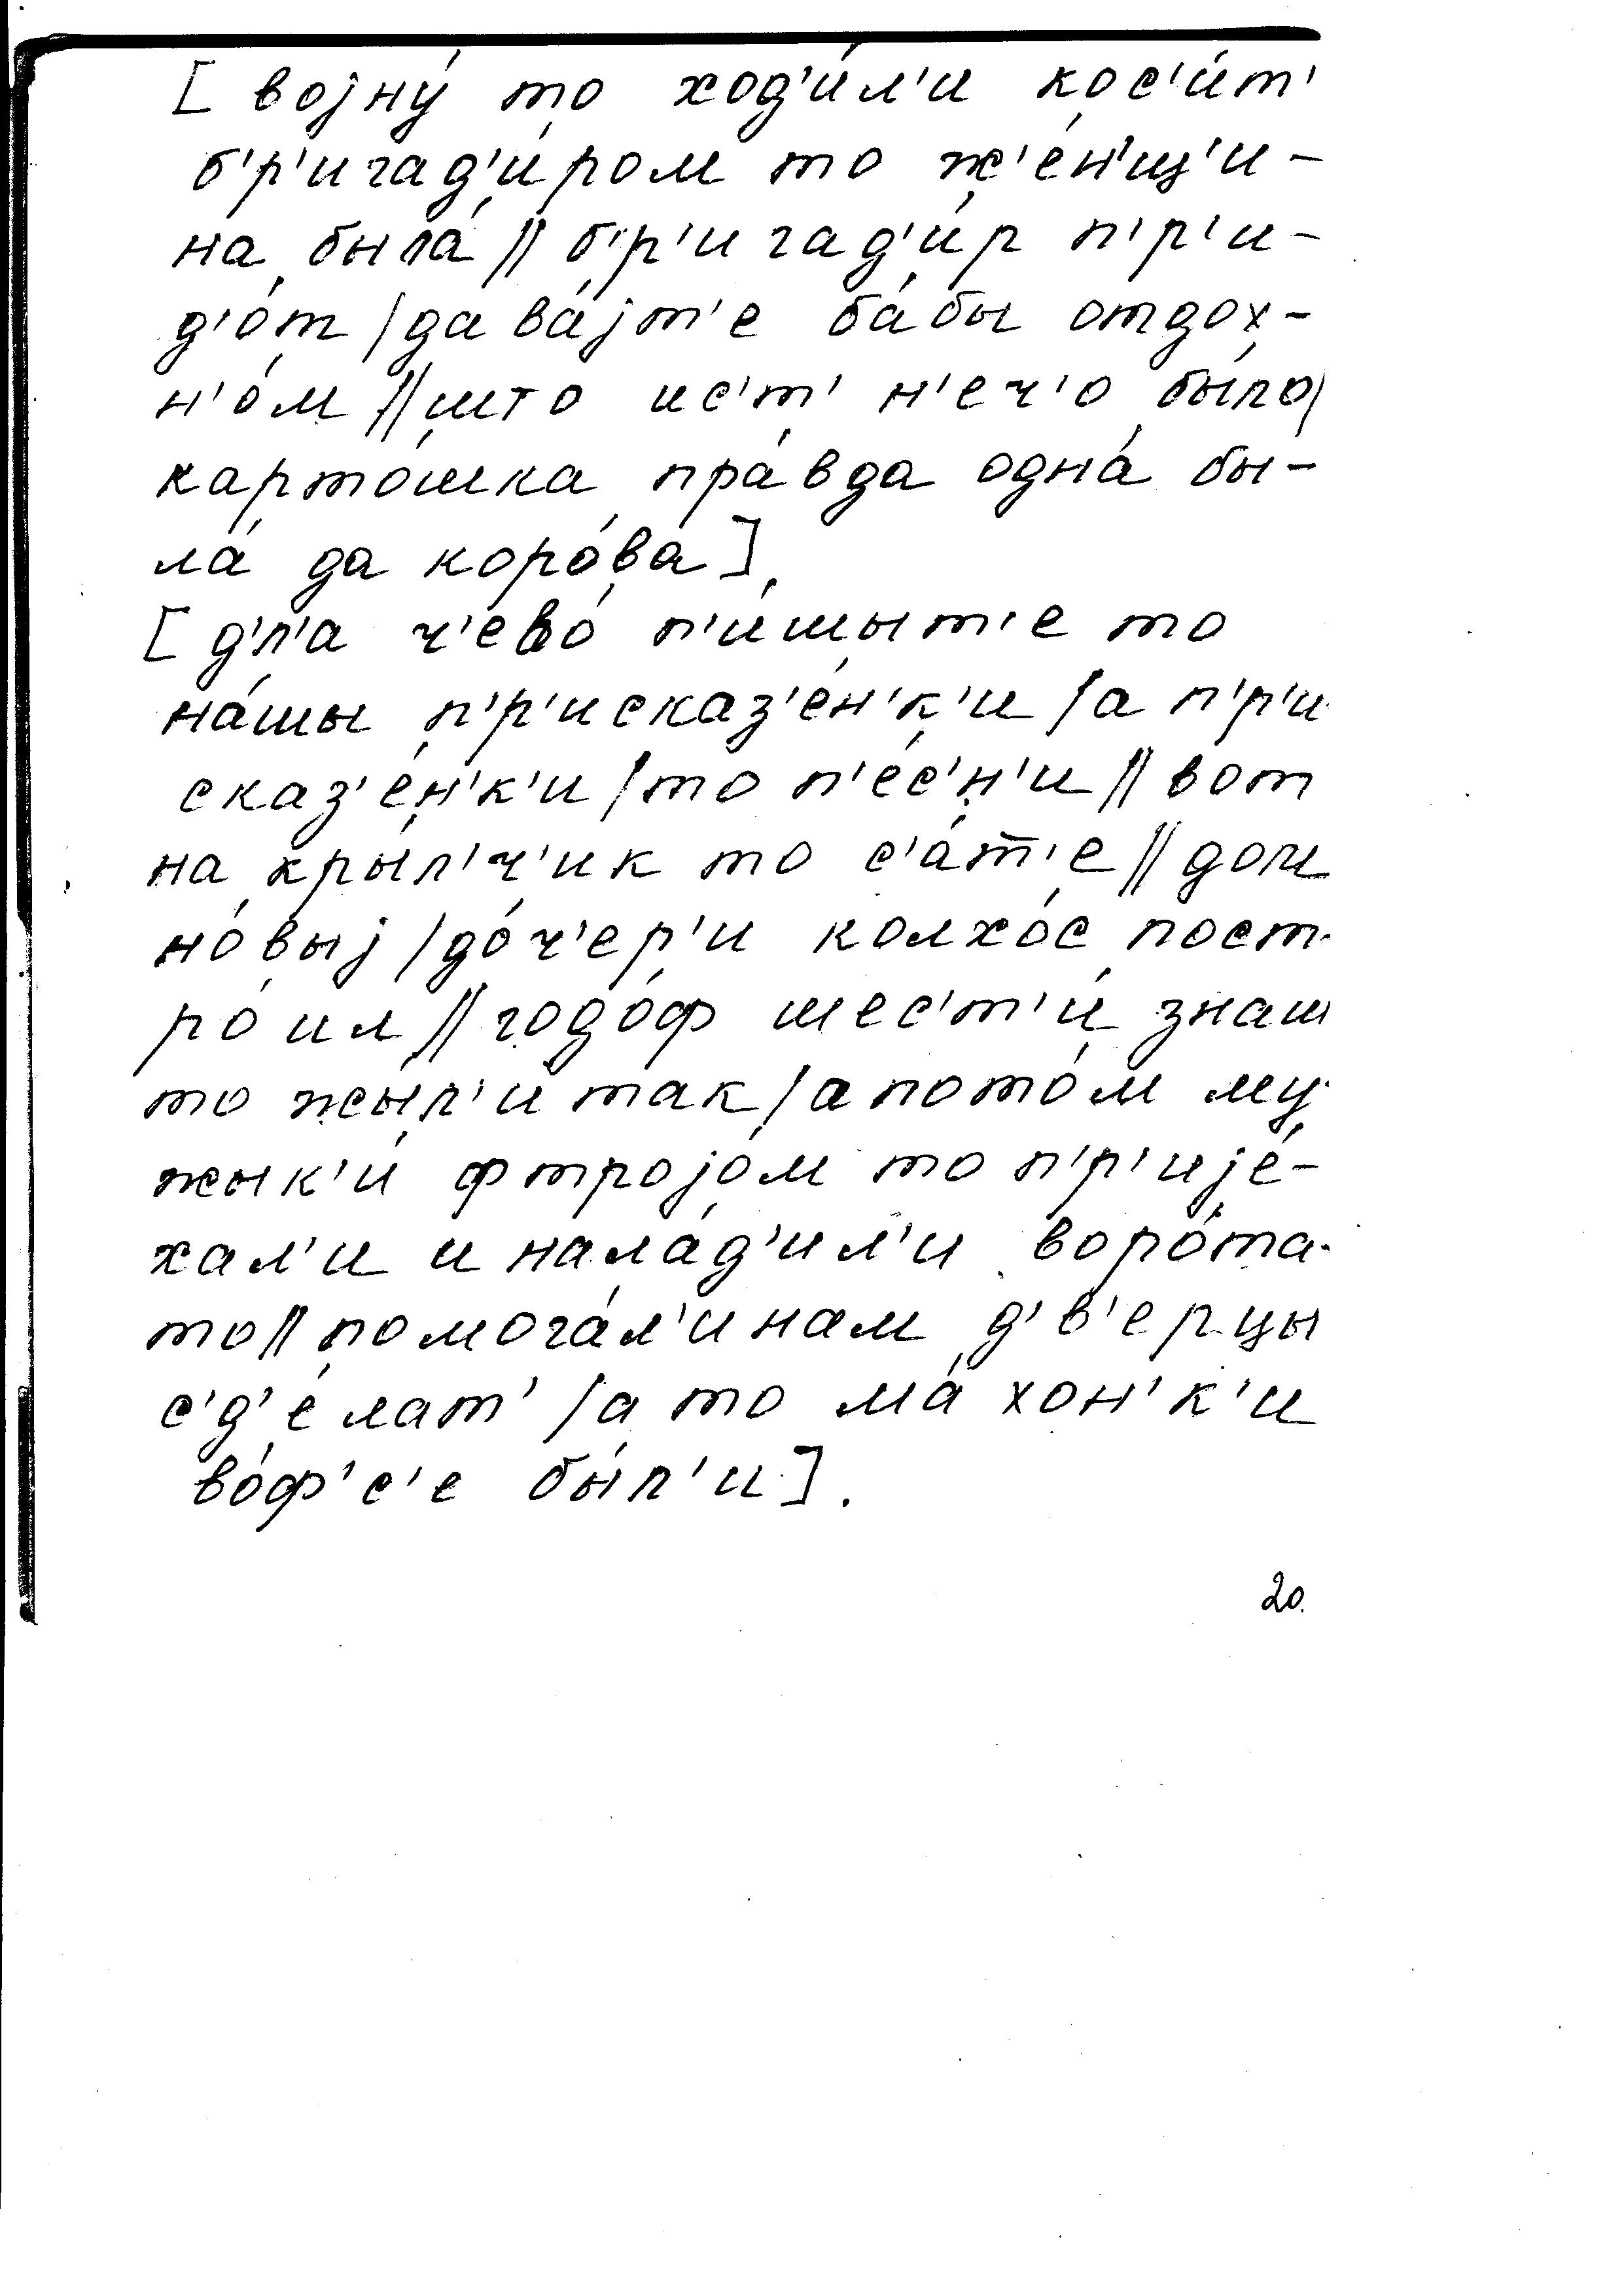 [ војну́ то ход'и́л'и кос'и́т'
б'р'игад'и́ром то ж'е́н'щ'и-
на была́ // б'р'игад'и́р п'р'и-
д'о́т / дава́јт'е ба́бы отдох-
н'о́м // што ис'т' н'еч'о бы́ло /
карто́шка пра́вда одна́ бы-
ла́ да коро́ва ].
[ д'л'а ч'ево́ п'и́шыт'е то
на́шы п'р'исказ'е́н'к'и / а п'р'и-
сказ'е́н'к'и / то п'е́с'н'и // вот
на крыл'ч'ик то с'а́т̅'е // дом
но́выј / до́ч'ер'и колхо́с пост-
ро́ил // годо́ф шес'т'и́ знаш
то жы́л'и так / а пото́м му-
жык'и́ фтројо́м то п'р'ијé-
хал'и и нала́д'ил'и воро́та-
то // помога́л'и нам д'в'ерцы
с'д'е́лат' / а то ма́хон'к'и
во́ф'с'е бы́л'и ].
20.